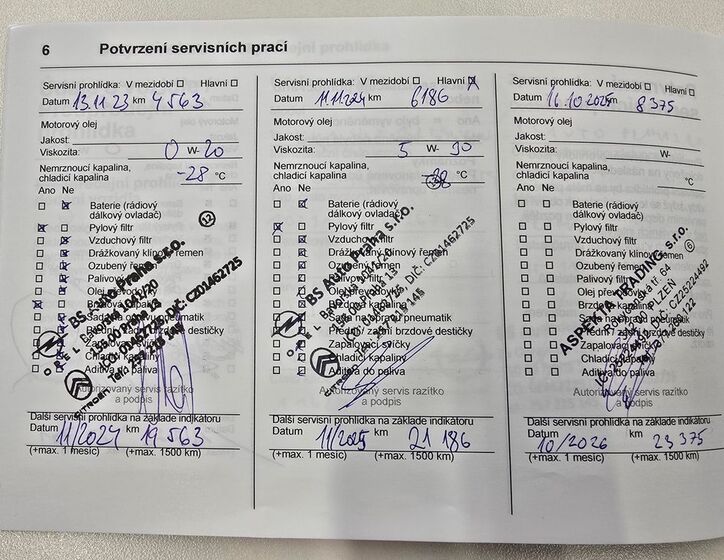 6 Potvrzení servisních prací
Servisní prohlídka: V mezidobí Hlavní
Datum 13.11.23 km 4 563
Motorový olej
Jakost:
Viskozita: 0 W- 20
Nemrznoucí kapalina,
chladicí kapalina -28 °C
Ano Ne
Baterie (rádiový
dálkový ovladač)
Pylový filtr
Vzduchový filtr
Drážkovaný klínový řemen
Ozubený řemen
Palivový
Olej
Sada na opravu pneumatik
Přední / zadní brzdové destičky
Zapalovací svíčky
Chladicí kapaliny
Aditiva do paliva
BS Auto Praha s.r.o.
OPEL
CITROËN
DIČ: CZ01462725
12
Autorizovaný servis razítko
a podpis
Další servisní prohlídka na základe indikátoru
Datum 11/2024 km 19 563
(+max. 1 mesíc) (+max. 1500 km)
Servisní prohlídka: V mezidobí Hlavní
Datum 11.11.2024 km 6186
Motorový olej
Jakost:
Viskozita: 5 W- 30
Nemrznoucí kapalina,
chladicí kapalina °C
Ano Ne
Baterie (rádiový
dálkový ovladač)
Pylový filtr
Vzduchový filtr
Drážkovaný klínový řemen
Ozubený řemen
Palivový
Sada na opravu pneumatik
Přední / zadní brzdové destičky
Zapalovací svíčky
Chladicí kapaliny
Aditiva do paliva
BS Auto Praha s.r.o.
OPEL
CITROËN
DIČ: CZ01462725
Autorizovaný servis razítko
a podpis
Další servisní prohlídka na základe indikátoru
Datum 11/2025 km 21 186
(+max. 1 mesíc) (+max. 1500 km)
Servisní prohlídka: V mezidobí Hlavní
Datum 16.10.2025 km 8 375
Motorový olej
Jakost:
Viskozita: W-
Nemrznoucí kapalina,
chladicí kapalina °C
Ano Ne
Baterie (rádiový
dálkový ovladač)
Pylový filtr
Vzduchový filtr
Drážkovaný klínový řemen
Ozubený řemen
Palivový filtr
Olej
Sada na opravu pneumatik
Přední / zadní brzdové destičky
Zapalovací svíčky
Chladicí kapaliny
Aditiva do paliva
ASPEKTA TRADING, s.r.o.
6
64
PLZEŇ
DIČ: CZ25224492
Autorizovaný servis razítko
a podpis
Další servisní prohlídka na základe indikátoru
Datum 10/2026 km 23 375
(+max. 1 mesíc) (+max. 1500 km)